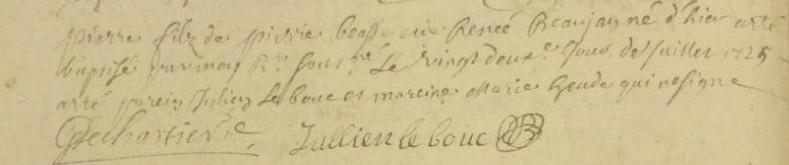 pierre filz de pierre beasse et de Reneé Beaujan né d'hier a esté
baptisé par moy Rr. sous né. Le vingt deuxe. Jour de Juillet 1725
a esté parein Jullien Le bouc et mareine Marie Heude qui ne signe
Jullien le bouc